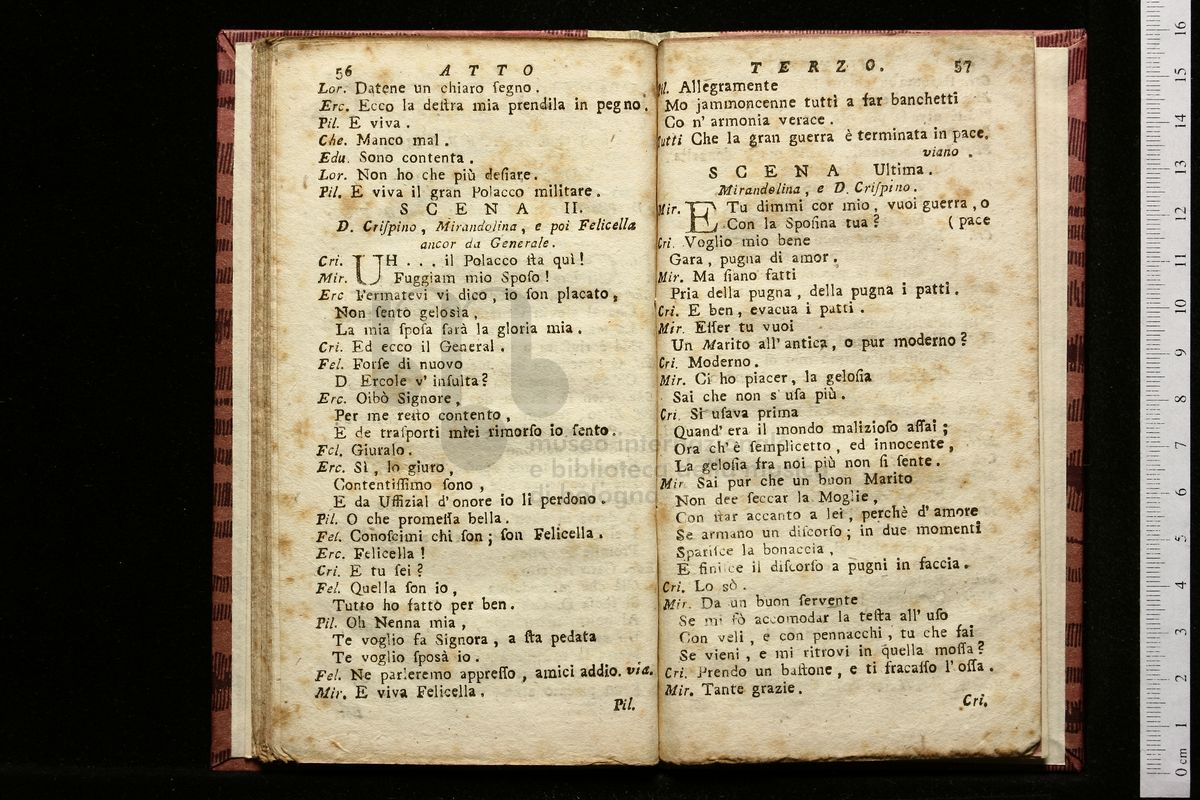 56 ATTO
Lor. Datene un chiaro ſegno.
Erc. Ecco la deſtra mia prendila in pegno.
Pil. E viva.
Che. Manco mal.
Edu. Sono contenta.
Lor. Non ho che più deſiare.
Pil. E viva il gran Polacco militare.
SCENA II.
D. Criſpino, Mirandolina, e poi Felicella
ancor da Generale.
Cri. UH . . . il Polacco ſta quì!
Mir. Fuggiam mio Spoſo!
Erc Fermatevi vi dico, io ſon placato,
Non ſento geloſia,
La mia ſpoſa ſarà la gloria mia.
Cri. Ed ecco il General.
Fel. Forſe di nuovo
D. Ercole v' inſulta?
Erc. Oibò Signore,
Per me reſto contento,
E de traſporti miei rimorſo io ſento.
Fel. Giuralo.
Erc. Sì, lo giuro,
Contentiſſimo ſono,
E da Uffizial d'onore io li perdono.
Pil. O che promeſſa bella.
Fel. Conoſcimi chi ſon; ſon Felicella.
Erc. Felicella!
Cri. E tu ſei?
Fel. Quella ſon io,
Tutto ho fatto per ben.
Pil. Oh Nenna mia,
Te voglio fa Signora, a ſta pedata
Te voglio ſposà io.
Fel. Ne parleremo appreſſo, amici addio. via.
Mir. E viva Felicella.
Pil.
TERZO. 57
Pil. Allegramente
Mo jammoncenne tutti a far banchetti
Co n' armonia verace.
Tutti Che la gran guerra è terminata in pace.
viano.
SCENA Ultima.
Mirandolina, e D. Criſpino.
Mir. E Tu dimmi cor mio, vuoi guerra, o
Con la Spoſina tua? (pace
Cri. Voglio mio bene
Gara, pugna di amor.
Mir. Ma ſiano fatti
Pria della pugna, della pugna i patti.
Cri. E ben, evacua i patti.
Mir. Eſſer tu vuoi
Un Marito all' antica, o pur moderno?
Cri. Moderno.
Mir. Ci ho piacer, la geloſia
Sai che non s' uſa più.
Cri. Si uſava prima
Quand' era il mondo malizioſo aſſai;
Ora ch' è ſemplicetto, ed innocente,
La geloſia fra noi più non ſi ſente.
Mir. Sai pur che un buon Marito
Non dee ſeccar la Moglie,
Con ſtar accanto a lei, perchè d' amore
Se armano un diſcorſo; in due momenti
Spariſce la bonaccia,
E finiſce il diſcorſo a pugni in faccia.
Cri. Lo sò.
Mir. Da un buon ſervente
Se mi fò accomodar la teſta all' uſo
Con veli, e con pennacchi, tu che fai
Se vieni, e mi ritrovi in quella moſſa?
Cri. Prendo un baſtone, e ti fracaſſo l'oſſa.
Mir. Tante grazie.
Cri.
museo internazionale
e biblioteca della musica
di bologna
16
15
14
13
12
11
10
9
8
7
6
5
4
3
2
1
0 cm